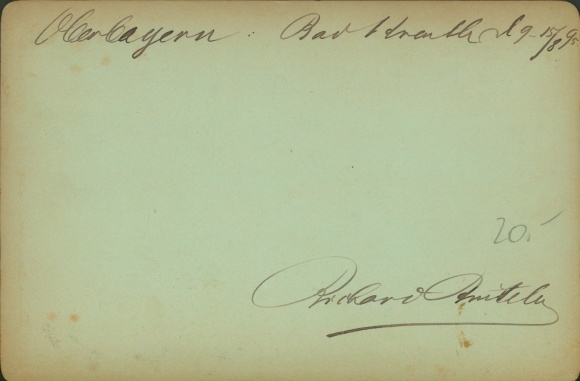 Oberbayern : Bad Kreuth d 9-15/8 95
20.-
Richard